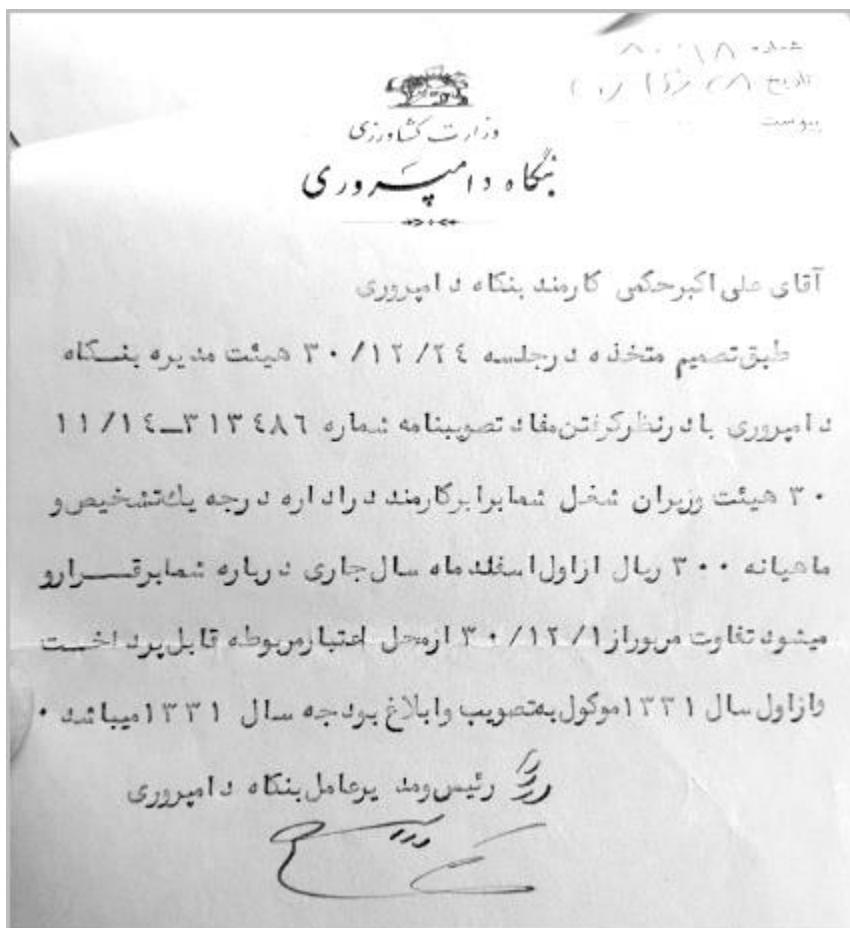 شماره ۸۰۰۱۸
تاریخ
پیوست
وزارت کشاورزی
بنگاه دامپروری
آقای علی اکبر حکمی کارمند بنگاه دامپروری
طبق تصمیم متخذه در جلسه ۳۰/۱۲/۲٤ هیئت مدیره بنگاه
دامپروری با در نظر گرفتن مفاد تصویبنامه شماره ۳۱۳٤۸٦ــ۱۱/۱٤
۳۰ هیئت وزیران شغل شما برابر کارمند در اداره درجه یک تشخیص و
ماهیانه ۳۰۰ ریال از اول اسفند ماه سال جاری درباره شما برقرار و
میشود تفاوت مربور از ۳۰/۱۲/۱ از محل اعتبار مربوطه قابل پرداخت
و از اول سال ۱۳۳۱ موکول به تصویب و ابلاغ بودجه سال ۱۳۳۱ میباشد ۰
رئیس و مدیر عامل بنگاه دامپروری